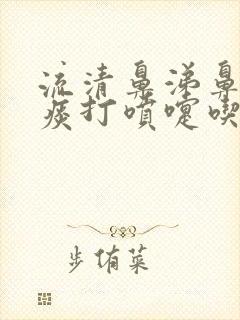 流清鼻涕鼻
痰打喷嚏喫
步侑菜